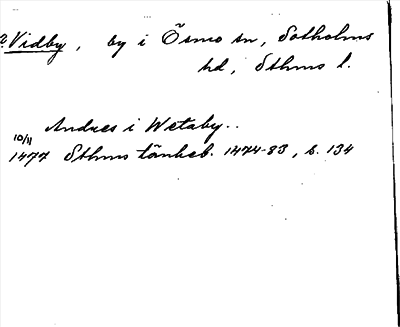 ? Vidby, by i Ösmo sn, Sotholms
hd, Sthms l.
Andres i Wetaby..
10/11
1477 Sthms tänkeb. 1474-83, s. 134